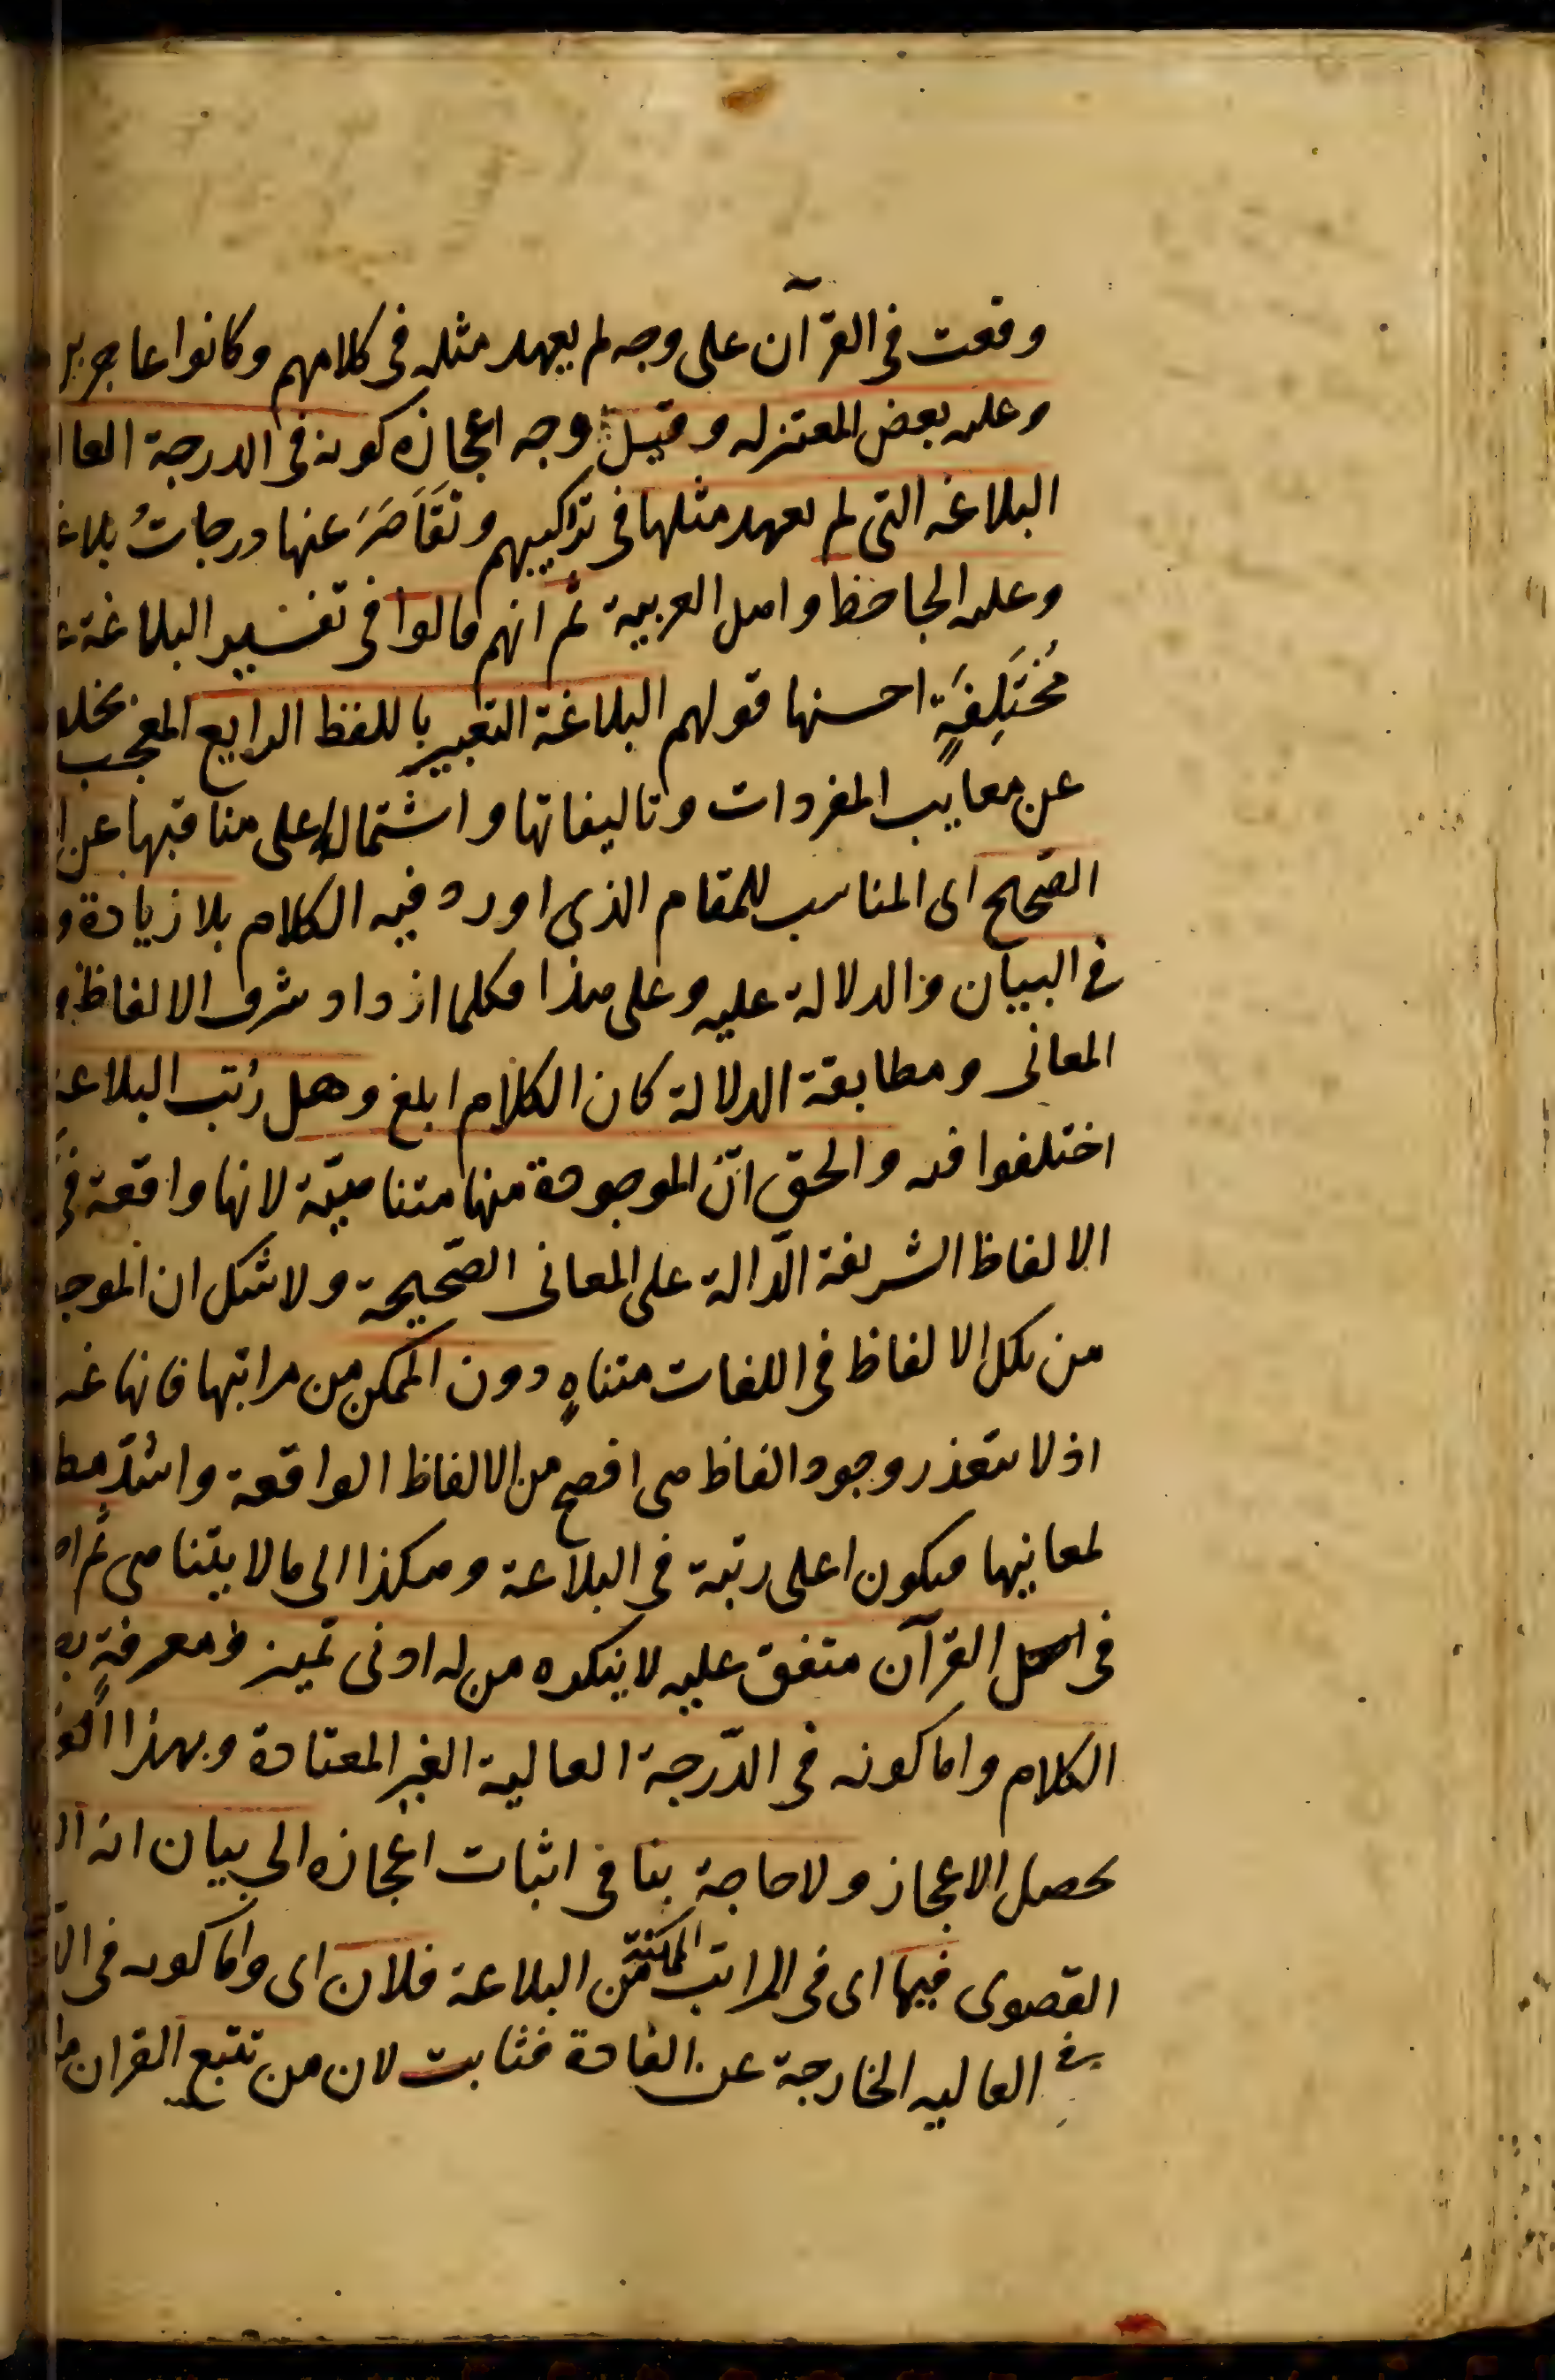 وقعت فى القرآن على وجه لم يعهد مثله فى كلامهم وكانوا عاجزين
وعليه بعض المعتزله وقيل وجه اعجازه كونه فى الدرجة العا
البلاغه التى لم يعهد مثلها فى تراكيبهم وتَقَاصَرَ عنها درجاتُ بلاغ
وعليه الجاحظ واهل العربية ثم انهم قالوا فى تفسير البلاغة
مُختَلِفَةٍ احسنها قولهم البلاغة التعبير باللفظ الرايع المعجب بخلو
عن معايب المفردات وتاليفاتها واشتماله على مناقبها عن ا
الصّحيح اى المناسب للمقام الذى اورد فيه الكلام بلا زيادة و
فى البيان والدلالة عليه وعلى هذا فكلما ازداد شرف الالفاظ و
المعانى ومطابقة الدلالة كان الكلام ابلغ وهل رُتب البلاغة
اختلفوا فيه والحق انّ الموجودة منها متناهيّة لانها واقعة فى
الالفاظ الشريفة الدّالة على المعانى الصّحيحة ولاشك ان الموجو
من تلك الالفاظ فى اللغات متناهٍ دون الممكن من مراتبها فانها غير
اذ لا يتعذر وجود الفاظ هى افصح من الالفاظ الواقعة واشدّ مطا
لمعانيها فيكون اعلى رتبة فى البلاغة وهكذا الى ما لا يتناهى ثم ان
فى القرآن متفق عليه لا ينكره من له ادنى تميز ومعرفةٍ بص
الكلام واما كونه فى الدّرجة العالية الغير المعتادة وبهذا القد
يحصل الاعجاز ولا حاجة بنا فى اثبات اعجازه الى بيان انه ال
القصوى فيها اى فى المراتب الممكنة من البلاغة فلان اى واما كونه فى ال
العاليه الخارجة عن العادة فثابت لان من تتبع القران